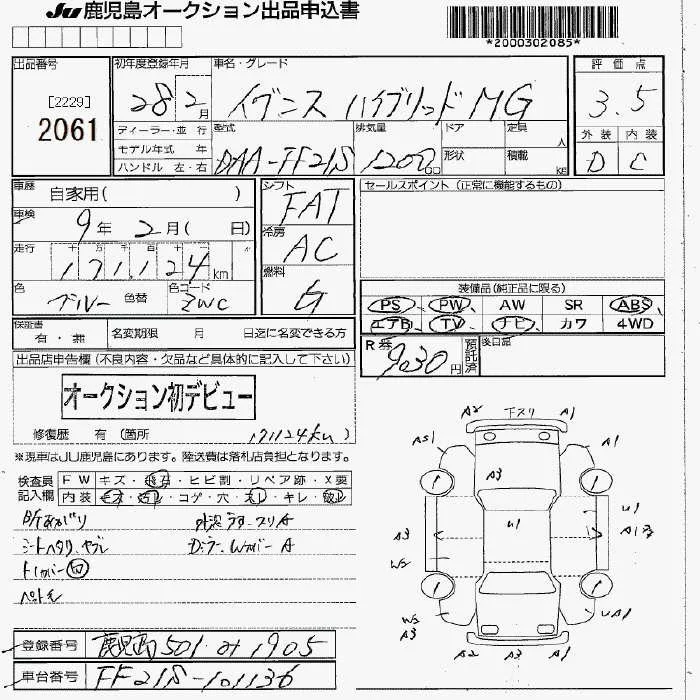 JU 鹿児島オークション出品申込書
*2000302085*
出品番号
[2229]
2061
初年度登録年月
28年 2月
車名・グレード
イグニス ハイブリッド MG
評価点
3.5
外装 内装
D C
ディーラー・並行
モデル年式 年
ハンドル 左・右
型式
DAA-FF21S
排気量
1200cc
ドア
形状
定員 人
積載 kg
車歴
自家用( )
車検
9年 2月( 日)
走行
十 万 千 百 十
171,124 km
色
ブルー 色替
色コード
ZWC
シフト
FAT
冷房
AC
燃料
ガ
セールスポイント (正常に機能するもの)
装備品(純正品に限る)
PS PW AW SR ABS
エアB TV ナビ カワ 4WD
R券
9030円
預託済
後日部品
保証書
有・無
名変期限 月 日迄に名変できる方
出品店申告欄(不良内容・欠品など具体的に記入して下さい)
オークション初デビュー
修復歴 有(箇所 171124km)
※現車はJU鹿児島にあります。陸送費は落札店負担となります。
検査員記入欄
FW キズ・飛石・ヒビ割・リペア跡・X要
内装
コゲ・穴・
・キレ・
シートヘタリ、ヤブレ
A2 下スリ A1
AS1 A1
A3
U1
U1
A3
W2
W2
A3
UA1
A2 A3 A1
登録番号
鹿児島 501 み 1905
車台番号
FF21S-101136